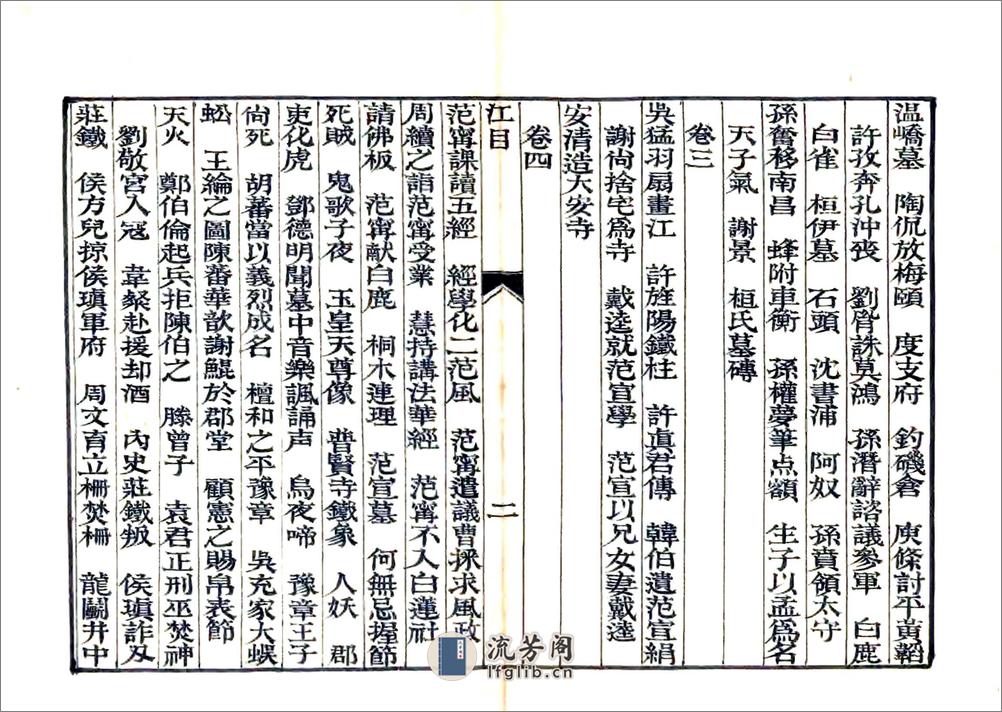 温嶠墓　陶侃放梅頤　度支府　釣磯倉　庾條討平黃韜
許孜奔孔沖喪　劉胥誅莫鴻　孫潛辭諮議參軍　白鹿
白雀　桓伊墓　石頭　沈書浦　阿奴　孫賁領太守
孫奮移南昌　蜂附車衡　孫權夢筆点額　生子以孟為名
天子氣　謝景　桓氏墓磚
卷三
吳猛羽扇畫江　許旌陽鐵柱　許眞君傳　韓伯遺范宣絹
謝尚捨宅爲寺　戴逵就范宣學　范宣以兄女妻戴逵
安清造大安寺
卷四
江目　二
范甯課讀五經　經學化二范風　范甯遣議曹採求風政
周續之詣范甯受業　慧持講法華經　范甯不入白蓮社
請佛板　范甯献白鹿　桐木連理　范宣墓　何無忌握節
死賊　鬼歌子夜　玉皇天尊像　普賢寺鐵象　人妖　郡
吏化虎　鄧德明聞墓中音樂諷誦声　烏夜啼　豫章王子
尚死　胡蕃當以義烈成名　檀和之平豫章　吳充家大蜈
蚣　王綸之圖陳蕃華歆謝鯤於郡堂　顧憲之賜帛表節
天火　鄭伯倫起兵拒陳伯之　滕曾子　袁君正刑巫焚神
劉敬宮入冦　韋粲赴援却酒　內史莊鐵叛　侯瑱詐及
莊鐵　侯方兒掠侯瑱軍府　周文育立栅焚栅　龍鬭井中
流芳阁
lfglib.cn